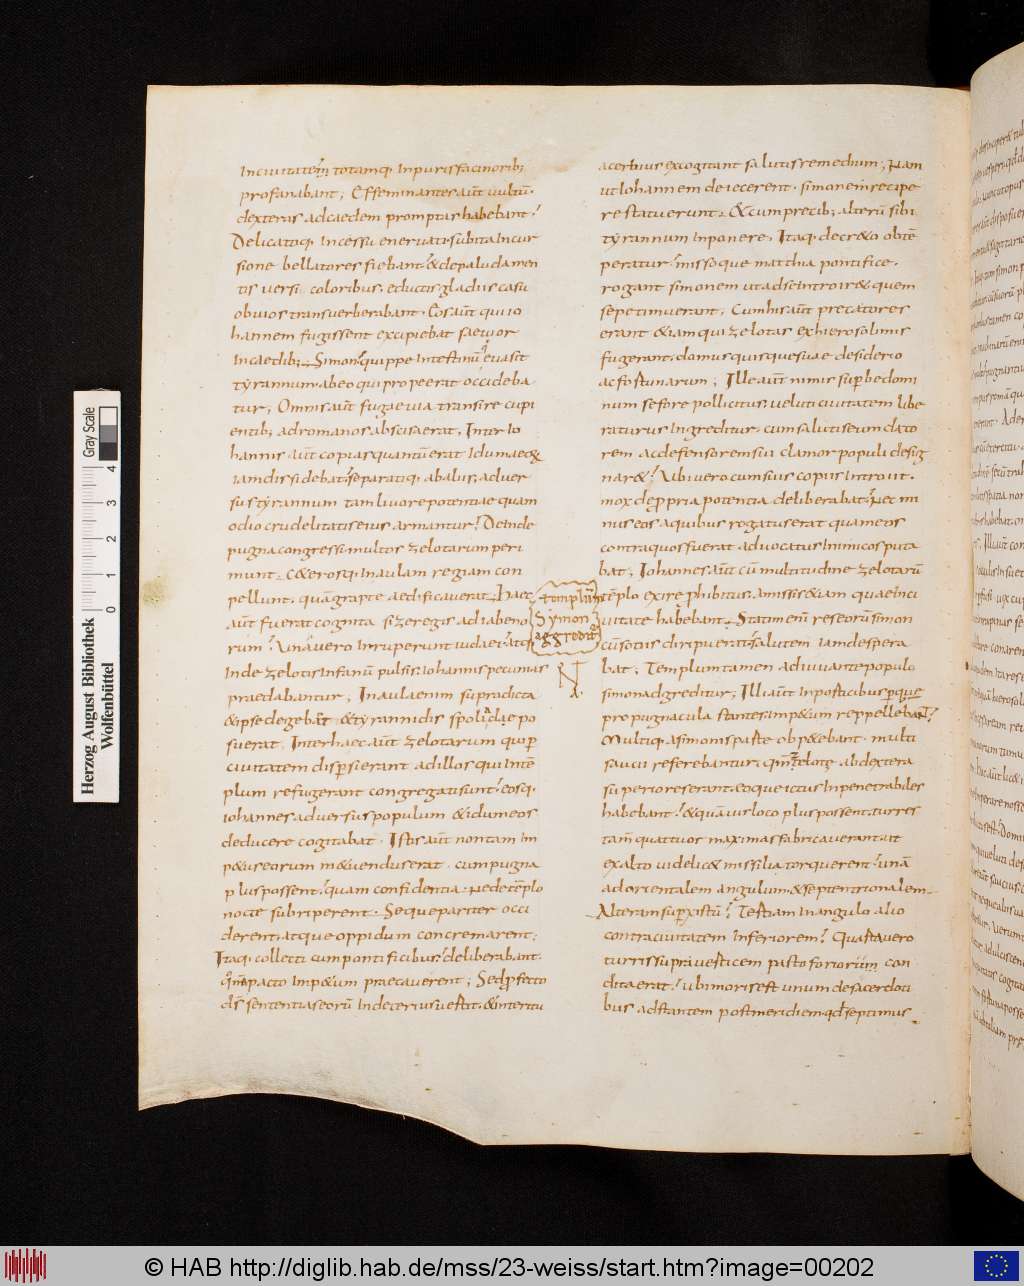 Inciuitatem totamq; Inpurissfacinorib;
profanabant; Effeminantes aut uultu
dexteras adcaedem promptas habebant
Delicatoq; Incessu eneruati subita Incur
sione bellatores fiebant & depaludamen
tis uersi coloribus eductis gladiis casu
obuios transuerberabant Eos aut qui io
hannem fugissent excipiebat saeuior
Incaedib; Simon quippe Intestinu euasit
tyrannum abeo qui pro peerat occideba
tur; Omnis aut fugae uia transire cupi
entib; adromanos abscisa erat; Inter Io
hannis aut copias quantu erat Idumaeo&
iamdissidebat separatiq; abaliis aduer
sustyrannum tam liuore potentiae quam
odio crudelitatis eius armantur Deinde
pugna congressi multos zelotarum peri
munt c&erosq; Inaulam regiam con
pellunt quam grapte aedificauerat Haec
aut fuerat cognita sizeregis adiabeno
rum Unauero Inruperunt iudaei atq;
Inde zelotis Infanu pulsis Iohannis pecunias
praedabantur; Inaula enim supradicta
&ipse degebat &tyrannidis spolia
suerat; Interhaec aut zelotarum quip
ciuitatem dispersi erant adillos qui Inte
plum refugerant congregati sunt eosq;
iohannes aduersus populum &idumeos
deducere cogitabat Istis aut non tam Im
p&us eorum m&uendus erat cum pugna
plus possent quam confidentia Nedeteplo
nocte subriperent Seque pariter occi
derent atque oppidum concremarent;
Itaq; collecti cum pontificibus deliberabant
pacto Imp&um praecauerent; Sed pfecto
ds sententias eoru Indeterius uertit &interitu
acerbius excogitant salutis remedium; Nam
ut Iohannem deiecerent simonem recipe
re statuerunt &cum precib; alteru sibi
tyrannum Inponere; Itaq; decr&o obte
peratur misso que matthia pontifice
rogant simonem ut adse introir& quem
sepe timuerant; Cum his aut precatores
erant &iam qui zelotas exhierosolimis
fugerant domus quisque suae desiderio
ac fortunarum; Ille aut nimis supbe domi
num se fore pollicitus ueluti ciuitatem libe
raturus Ingreditur cum salutis eum dato
rem ac defensorem sua clamor populi desig
nar& Ubi uero cum suis copiis Introiit
mox depropria potentia deliberabat Nec mi
nus eos a quibus rogatus erat quam eos
contra quos fuerat aduocatus Inimicos puta
bat; Iohannes aut cu multitudine zelotaru
templo exire phibitus amissis &iam quae Inci
uitate habebant Statim eni res eoru simon
cu sotiis diripuerat salutem iam despera
bat; Templum tamen adiuuante populo
simon adgreditur; Illi aut Inposticibus pque
propugnacula stantes imp&um reppellebant
Multiq; a simonis parte obp&ebant multi
saucii referebantur, qm zelote abdextera
superiores erant eoque ictus Inpenetrabiles
habebant &quamuis loco plus possent turres
tam quattuor maximas fabricauerant ut
exalto uidelic& missilia torquerent una
adorientalem angulum &septentrionalem
Alteram supxistu Tertiam Inangulo alio
contra ciuitatem Inferiorem Quarta uero
turris supra uerticem pastoforiorum con
dita erat ubi moris est unum de sacerdoti
bus adstantem post meridiem qd septimus
templum
Symon
aggredit
Herzog August Bibliothek
Wolfenbüttel
0 1 2 3 4
Gray Scale
© HAB http://diglib.hab.de/mss/23-weiss/start.htm?image=00202